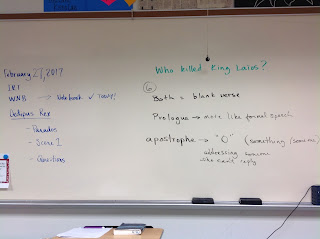 February 27, 2017
IRT
WNB → Notebook ✓ Today!
Oedipus Rex
- Parodos
- Scene I
- Questions
Who killed King Laios?
6
Both = blank verse
Prologue → more like formal speech
apostrophe → "O" (something/someone)
addressing someone
who can't reply